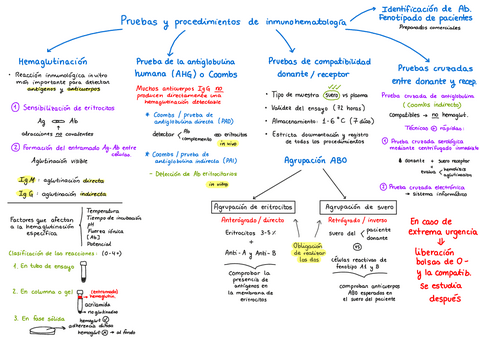 Pruebas y procedimientos de inmunohematología
Identificación de Ab.
Fenotipado de pacientes
Preparados comerciales
Hemaglutinación
• Reacción inmunológica in vitro
más importante para detectar
antígenos y anticuerpos
① Sensibilización de eritrocitos
Ag ⇌ Ab
atracciones no covalentes
② Formación del entramado Ag-Ab entre
células.
Aglutinación visible
Ig M : aglutinación directa
Ig G : aglutinación indirecta
Factores que afectan
a la hemaglutinación
específica
Temperatura
Tiempo de incubación
pH
Fuerza iónica
[Ab]
Potencial
Clasificación de las reacciones: (0-4+)
1. En tubo de ensayo
2. En columna o gel
(entramado)
hemaglutin.
acrilamida
no aglutinados
3. En fase sólida
adherencia difusa
hemaglut
hemaglut → al fondo
Prueba de la antiglobulina
humana (AHG) o Coombs
Muchos anticuerpos IgG no
producen directamente una
hemaglutinación detectable
* Coombs / prueba de
antiglobulina directa (PAD)
detectar Ab
complemento
eritrocitos
in vivo
* Coombs / prueba de
antiglobulina indirecta (PAI)
- Detección de Ab eritrocitarios
in vitro
Pruebas de compatibilidad
donante / receptor
• Tipo de muestra suero vs plasma
• Validez del ensayo (72 horas)
• Almacenamiento: 1-6 °C (7 días)
• Estricta documentación y registro
de todos los procedimientos
Agrupación AB0
Agrupación de eritrocitos
Anterógrado / directo
Eritrocitos 3-5 %
+
Anti - A y Anti - B
Comprobar la
presencia de
antígenos en
la membrana de
eritrocitos
Obligación
de realizar
las dos
Agrupación de suero
Retrógrado / inverso
suero del paciente
donante
vs
células reactivas de
fenotipo A1 y B
comprobar anticuerpos
AB0 esperados en
el suero del paciente
Pruebas cruzadas
entre donante y recep.
Prueba cruzada de antiglobulina
(Coombs indirecto)
Compatibles → no hemaglut.
Técnicas + rápidas:
① Prueba cruzada serológica
mediante centrifugado inmediato
donante + suero receptor
evalúa
hemólisis
aglutinación
② Prueba cruzada electrónica
→ sistema informático
En caso de
extrema urgencia
liberación
bolsas de 0-
y la compatib.
se estudia
después